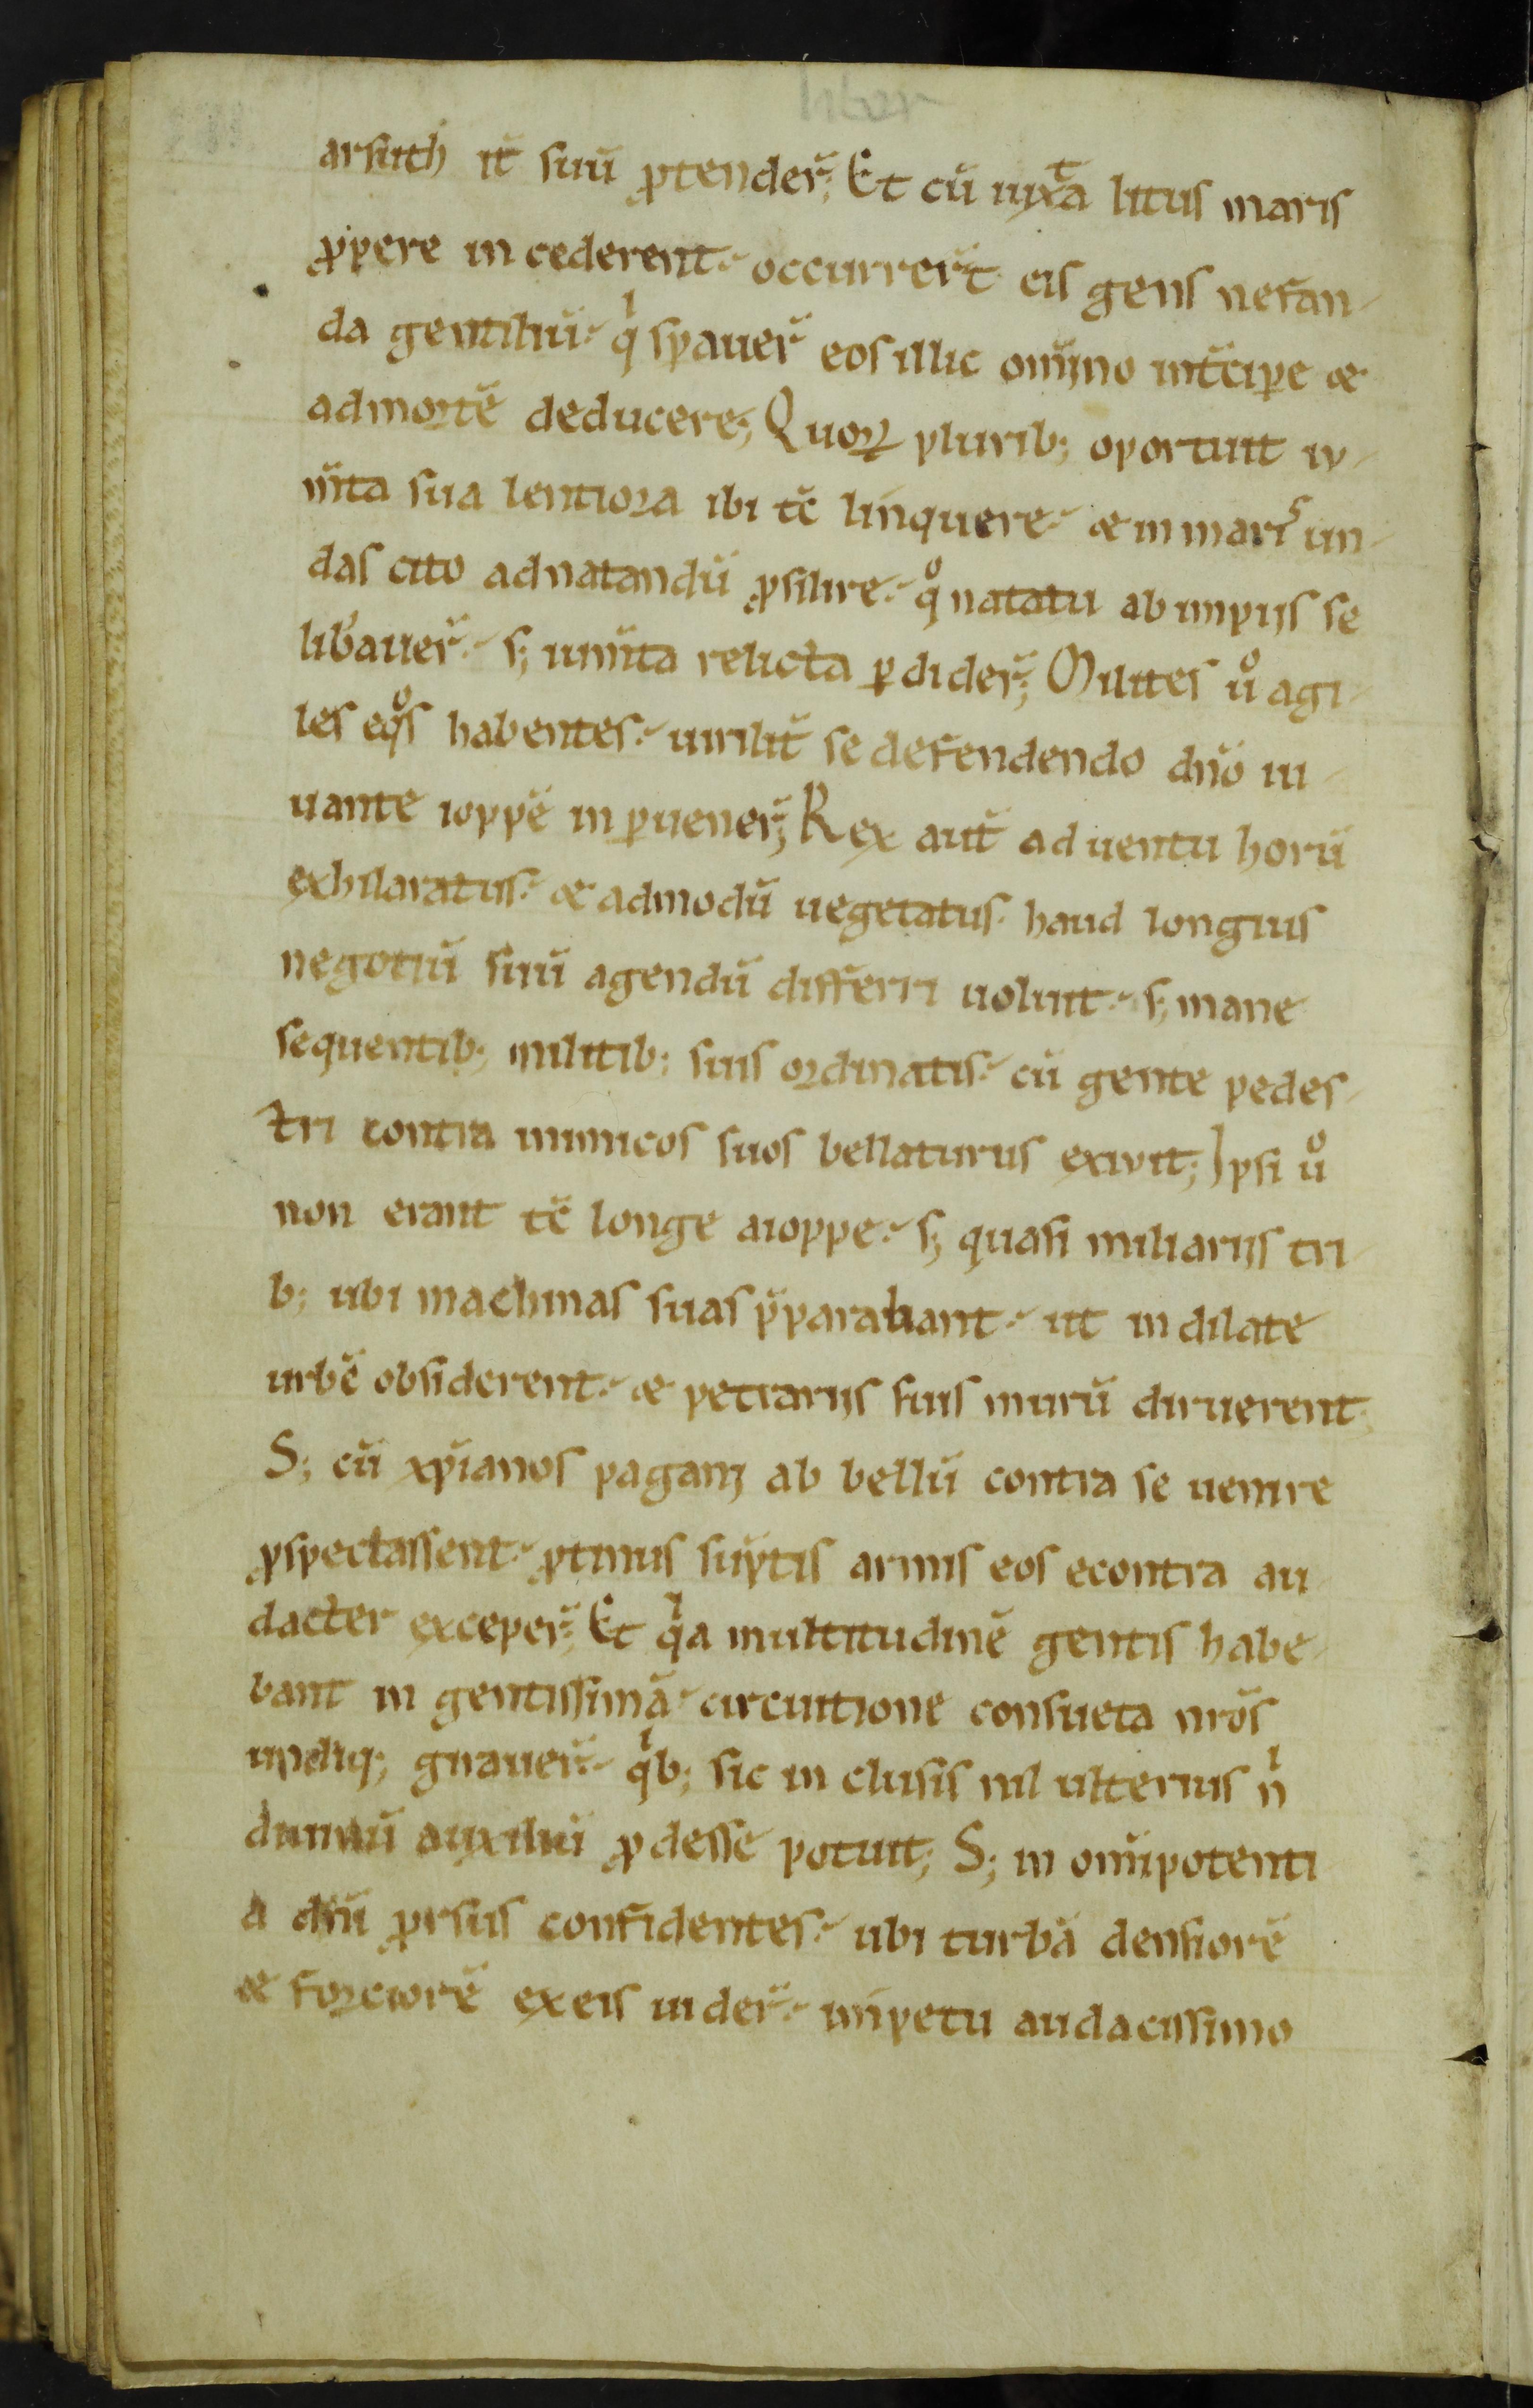 liber
arsuth it̄ suū ꝓtender̄; Et cū iuxͭa litus maris
ꝓpere in cederent· occurrer̄t eis gens nefan-
da gentiliū· qͥ sꝑauer̄ eos illic om̄ino int̄cipe &
admortē deducere; Quoꝝ plurib; oportuit iu-
m̄ta sua lentiora ibi tc̄ linquere· & in mariˢ un-
das cito adnatandū ꝓsilire· qͦ natatu ab impijs se
lib̄auer̄· s; ium̄ta relicta ꝑdider̄; Milites uͦ agi-
les eqͦs habentes· uirilit̄ se defendendo dn̄o iu-
uante ioppē in ꝑuener̄; Rex aut̄ ad uentu horū
exhilaratus· & admodū uegetatus· haud longius
negotiū suū agendū differri uoluit· s; mane
sequentib; militib; suis ordinatis· cū gente pedes-
tri contra inimicos suos bellaturus exiuit; Ipsi uͦ
non erant tc̄ longe aioppe· s; quasi miliarijs tri-
b; ubi machinas suas p̄parabant· ut in dilate
urbē obsiderent· & petrarijs suis murū diruerent
S; cū xp̄ianos pagani ab bellū contra se uenire
ꝓspectassent· ꝓtinus sūptis armis eos econtra au-
dacter exceper̄; Et qͥa multitudinē gentis habe-
bant in gentissimā· circuitione consueta nr̄os
undiq; gr̄auer̄· qͥb; sic in clusis nil ulterius nͥ
diuinū auxiliū ꝓdesse potuit; S; in om̄ipotenti
a dn̄i ꝓrsus confidentes· ubi turbā densiorē
& forciorē ex eis uider̄· impetu audacissimo